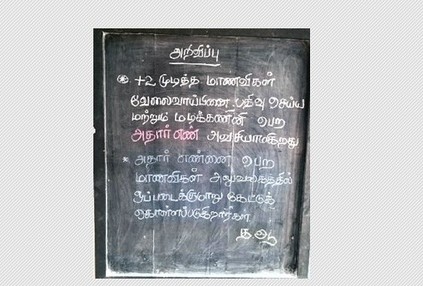 அறிவிப்பு
+2 முடித்த மாணவிகள்
வேலைவாய்ப்பினை பதிவு செய்ய
மற்றும் மடிக்கணினி பெற
அதார் எண் அவசியமாகிறது
* அதார் எண்ணை பெற
மாணவிகள் அலுவலகத்தில்
ஒப்படைக்குமாறு கேட்டுக்
கொள்ளப்படுகிறார்கள்
த ஆ